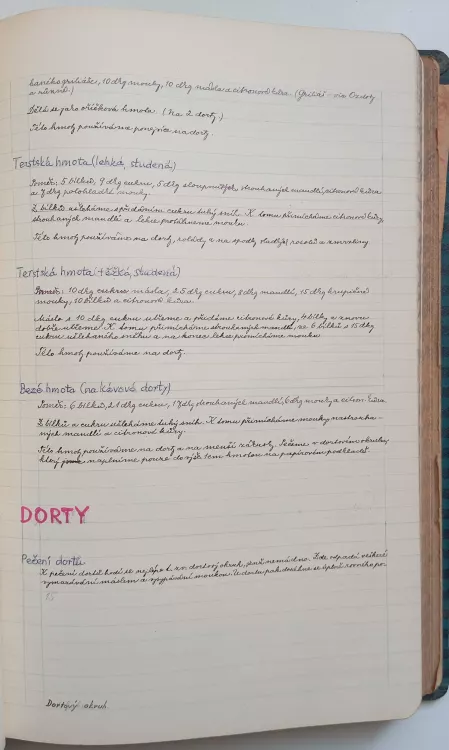 haného griliáže, 10 dkg mouky, 10 dkg másla a citronová kůra. (Griliáž - viz Ozdoby
a různé)
Dělá se jako oříšková hmota. (Na 2 dorty.)
Této hmoty používáme ponejvíce na dorty.
Terstská hmota (lehká, studená)
Poměr: 5 bílků, 9 dkg cukru, 5 dkg sloupnutých, strouhaných mandlí, citronová kůra
a 7 dkg polohladké mouky.
Z bílků ušleháme s přidáním cukru tuhý sníh. K tomu přimícháme citronové kůry,
strouhaných mandlí a lehce protáhneme mouku.
Této hmoty používáme na dorty, rolády a na spodky sladkých rosolů a zmrzliny.
Terstská hmota (těžká, studená)
Poměr: 10 dkg cukru másla, 25 dkg cukru, 8 dkg mandlí, 15 dkg krupičné
mouky, 10 bílků a citronová kůra.
Máslo s 10 dkg cukru utřeme a přidáme citronové kůry, 4 bílky a znovu
dobře utřeme. K tomu přimícháme strouhaných mandlí, ze 6 bílků s 15 dkg
cukru ušlehaného sněhu a na konec lehce přimícháme mouku.
Této hmoty používáme na dorty.
Bezé hmota (na kávové dorty)
Poměr: 6 bílků, 21 dkg cukru, 17 dkg strouhaných mandlí, 6 dkg mouky a citron. kůra.
Z bílků a cukru ušleháme tuhý sníh. K tomu přimícháme mouky, nastrouha-
ných mandlí a citronové kůry.
Této hmoty používáme na dorty a na menší zákusky. Pečeme v dortovém okruhu,
který naplníme pouze do výše tem hmotou na papírovém podkladě.
DORTY
Pečení dortů
K pečení dortů hodí se nejlépe t. zv. dortový okruh, jenž nemá dno. Zde odpadá veškeré
vymazávání máslem a vysypávání moukou. U dortu pak docílíme se úplně rovného po-
15
Dortový okruh